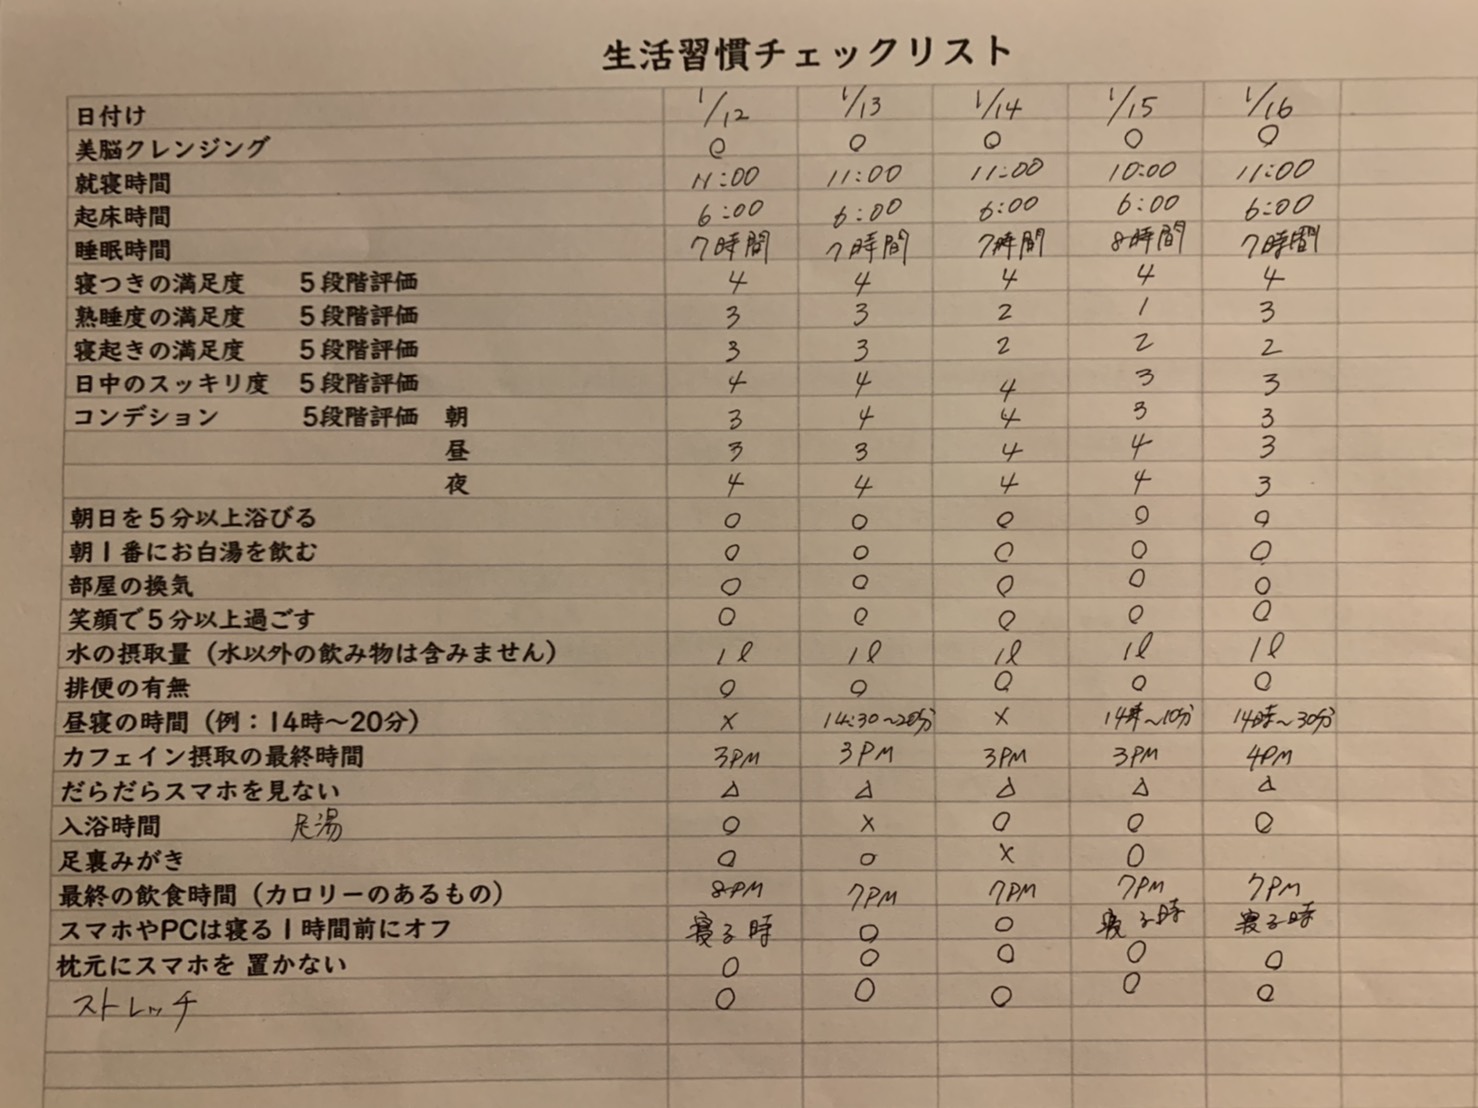 生活習慣チェックリスト
日付け 1/12 1/13 1/14 1/15 1/16
美脳クレンジング ○ ○ ○ ○ ○
就寝時間 11:00 11:00 11:00 10:00 11:00
起床時間 6:00 6:00 6:00 6:00 6:00
睡眠時間 7時間 7時間 7時間 8時間 7時間
寝つきの満足度 5段階評価 4 4 4 4 4
熟睡度の満足度 5段階評価 3 3 2 1 3
寝起きの満足度 5段階評価 3 3 2 2 2
日中のスッキリ度 5段階評価 4 4 4 3 3
コンデション 5段階評価 朝 3 4 4 3 3
昼 3 3 4 4 3
夜 4 4 4 4 3
朝日を5分以上浴びる ○ ○ ○ ○ ○
朝1番にお白湯を飲む ○ ○ ○ ○ ○
部屋の換気 ○ ○ ○ ○ ○
笑顔で5分以上過ごす ○ ○ ○ ○ ○
水の摂取量（水以外の飲み物は含みません） 1ℓ 1ℓ 1ℓ 1ℓ 1ℓ
排便の有無 ○ ○ ○ ○ ○
昼寝の時間（例：14時～20分） × 14:30~20分 × 14時~10分 14時~30分
カフェイン摂取の最終時間 3PM 3PM 3PM 3PM 4PM
だらだらスマホを見ない △ △ △ △ △
入浴時間 足湯 ○ × ○ ○ ○
足裏みがき ○ ○ × ○
最終の飲食時間（カロリーのあるもの） 8PM 7PM 7PM 7PM 7PM
スマホやPCは寝る1時間前にオフ 寝る時 ○ ○ 寝る時 寝る時
枕元にスマホを 置かない ○ ○ ○ ○ ○
ストレッチ ○ ○ ○ ○ ○